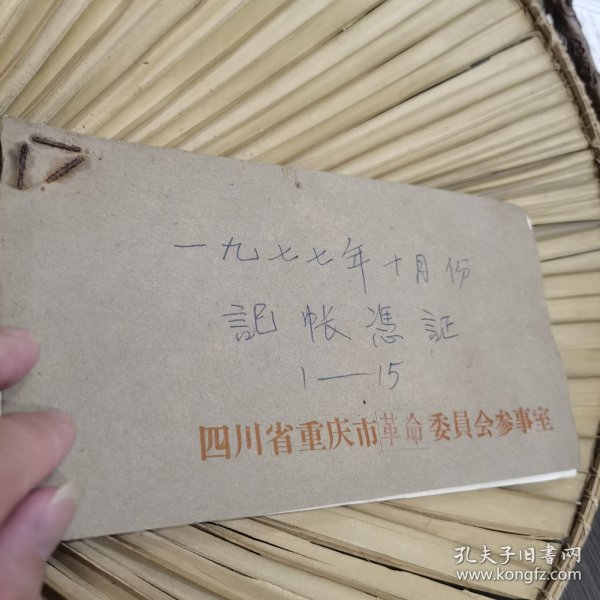 一九七七年十月份
記帐憑証
1—15
四川省重庆市革命委員会参事室
孔夫子旧书网
www.kongfz.com